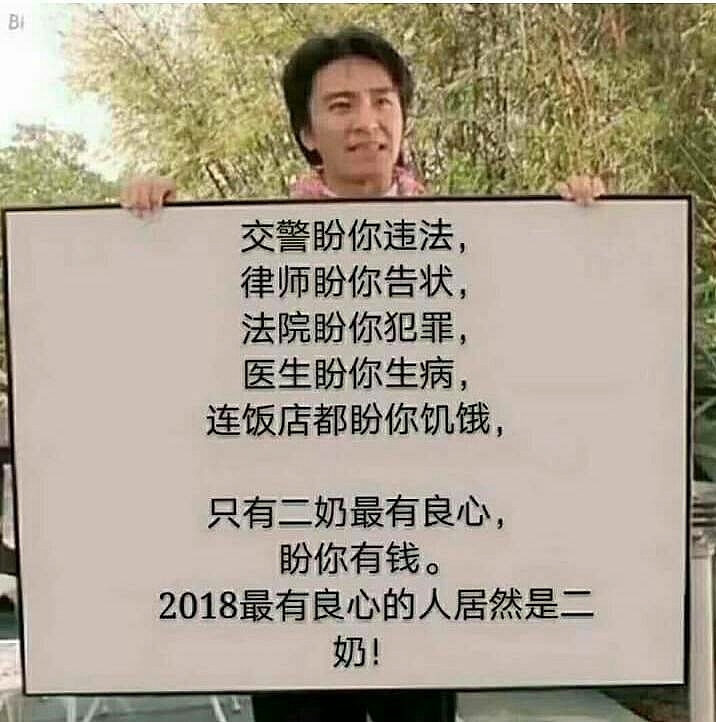 Bi
交警盼你违法，
律师盼你告状，
法院盼你犯罪，
医生盼你生病，
连饭店都盼你饥饿，
只有二奶最有良心，
盼你有钱。
2018最有良心的人居然是二
奶！